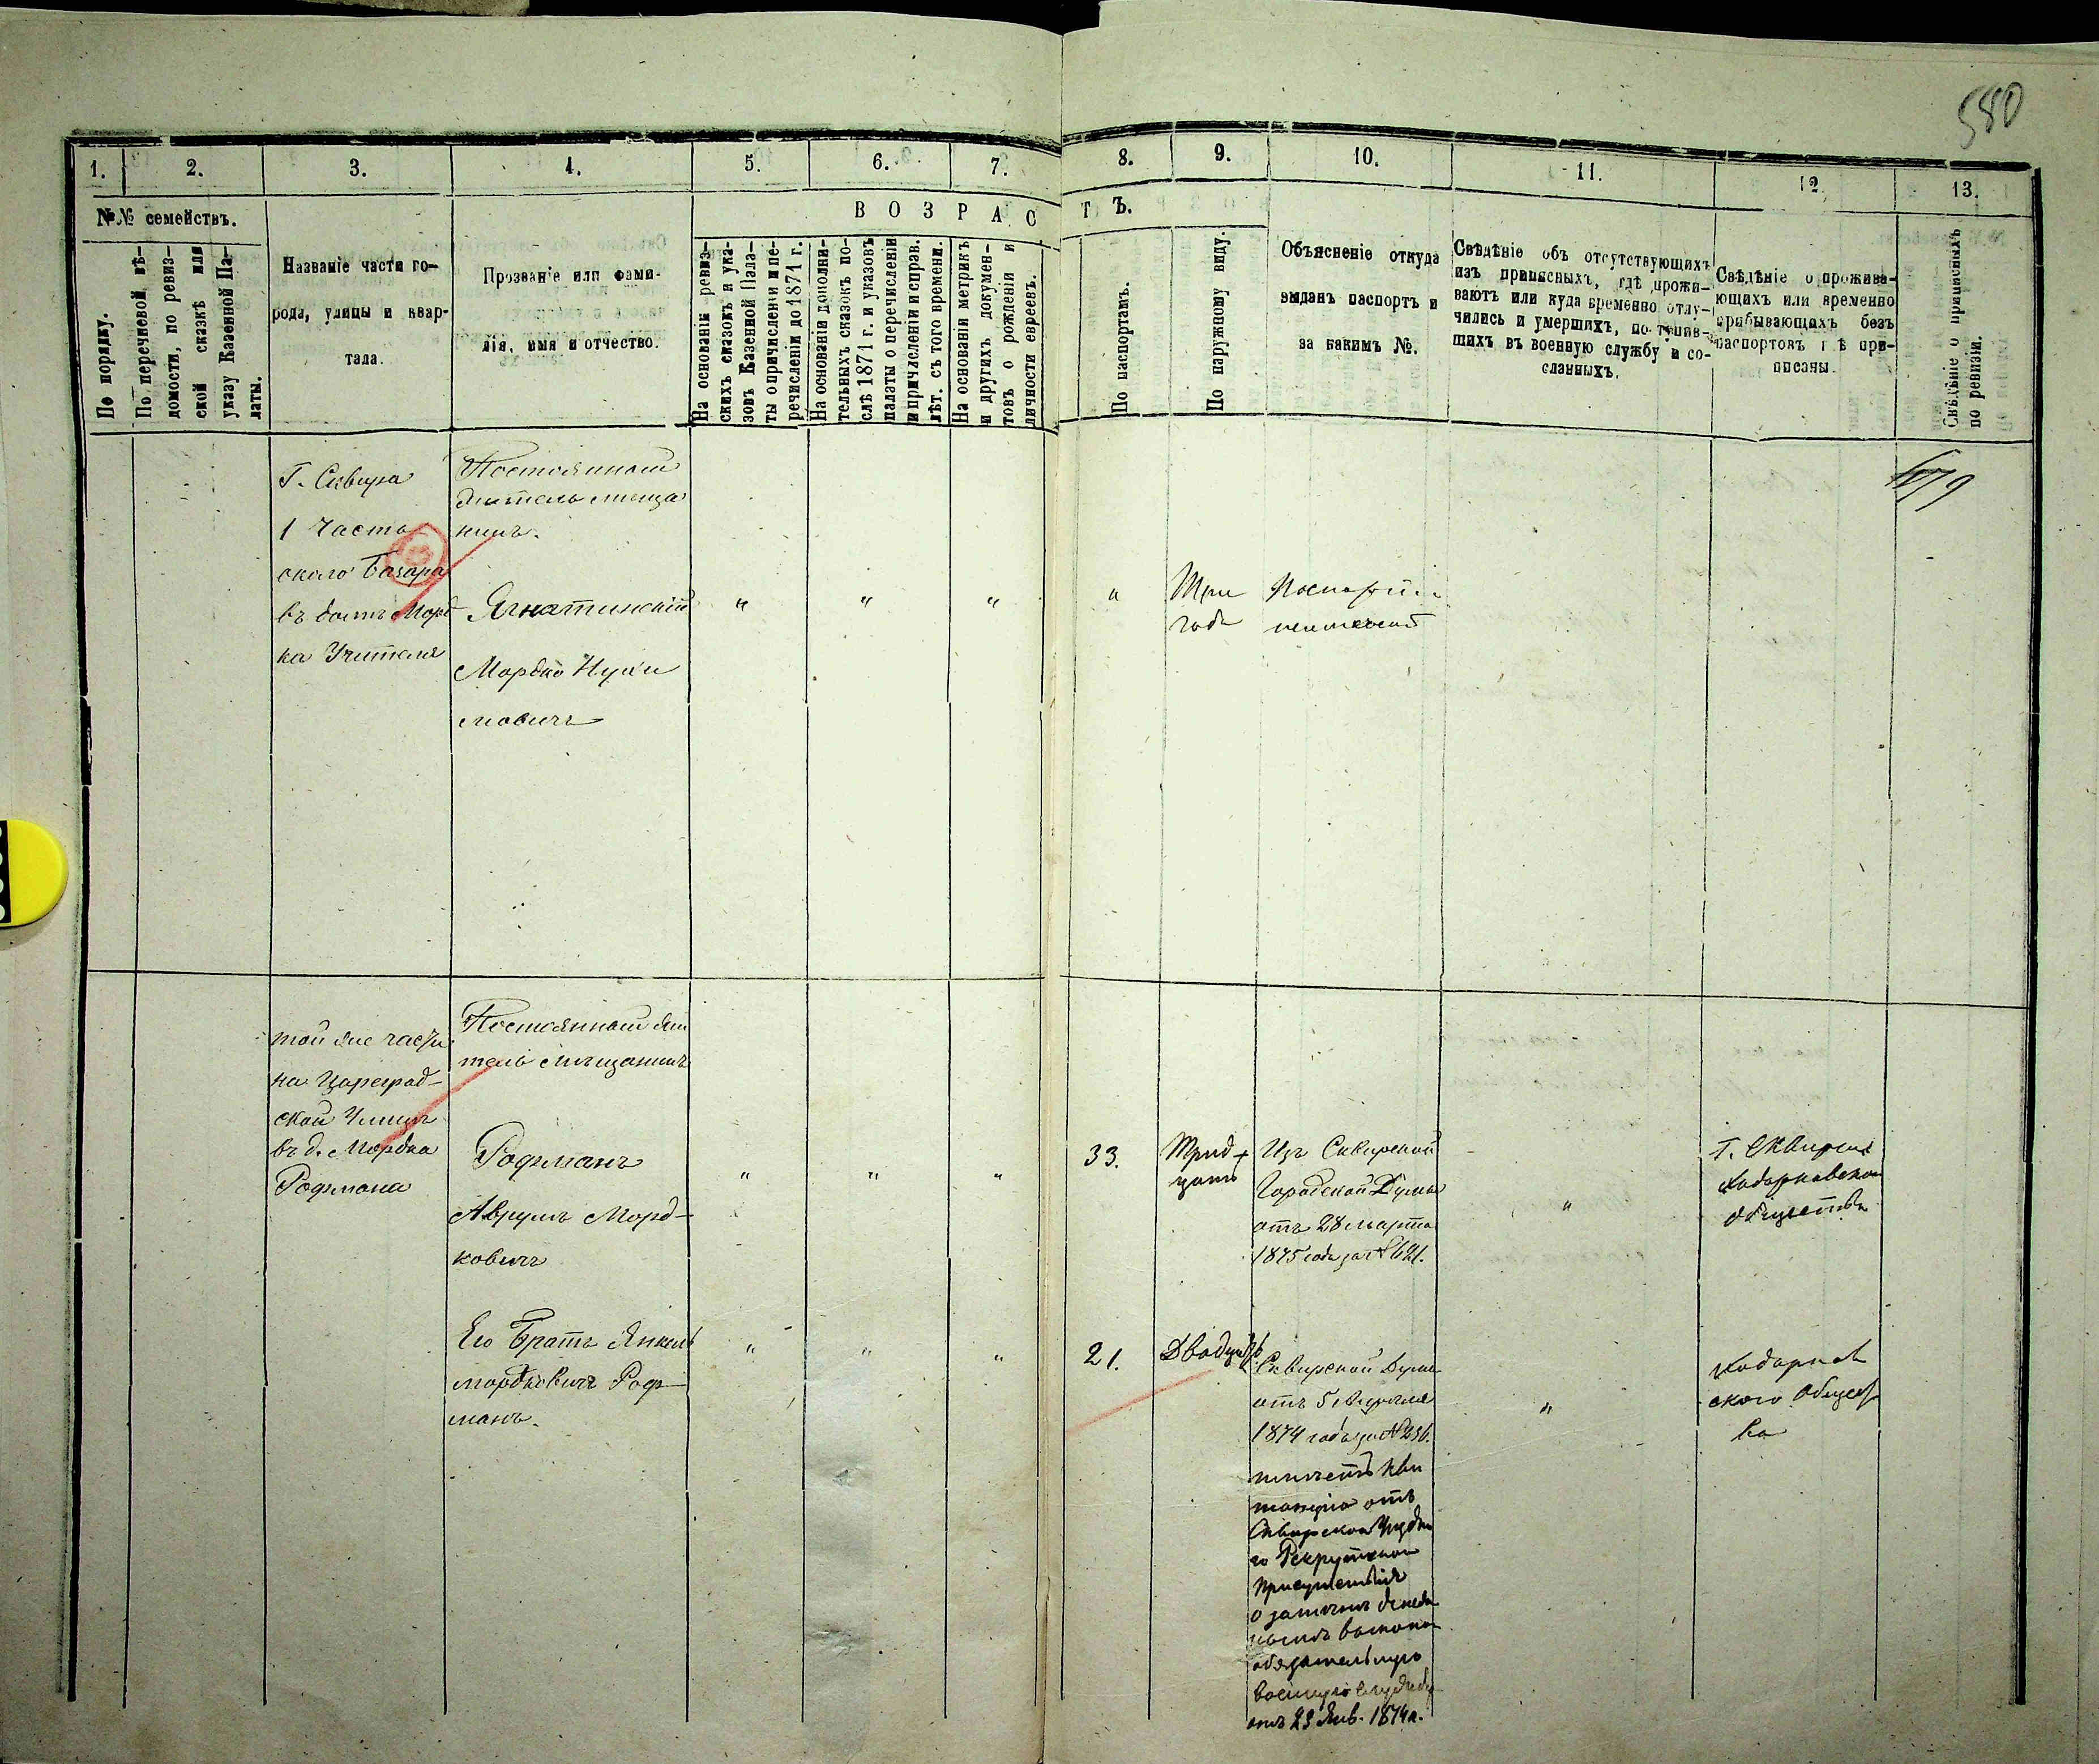 580
1.
2.
3.
4.
5.
6.
7.
8.
9.
10.
11.
12.
13.
№№ семействъ.
ВОЗРАСТЪ.
По порядку.
По перечневой вѣ-
домости, по ревиз-
ской сказкѣ или
указу Казенной Па-
латы.
Названіе части го-
рода, улицы и квар-
тала.
Прозваніе или фами-
лія, имя и отчество.
На основаніи ревиз-
скихъ сказокъ и ука-
зовъ Казенной Пала-
ты о причисленіи и пе-
речисленіи до 1871 г.
На основаніи дополни-
тельныхъ сказокъ по-
слѣ 1871 г. и указовъ
палаты о перечисленіи
и причисленіи и справ.
лѣт. съ того времени.
На основаніи метрикъ
и другихъ докумен-
товъ о рожденіи и
личности евреевъ.
По паспортамъ.
По наружному виду.
Объясненіе откуда
выданъ паспортъ и
за какимъ №.
Свѣдѣніе объ отсутствующихъ
изъ приписныхъ, гдѣ прожи-
ваютъ или куда временно отлу-
чились и умершихъ, поступив-
шихъ въ военную службу и со-
сланныхъ.
Свѣдѣніе о прожива-
ющихъ или временно
прибывающихъ безъ
паспортовъ гдѣ при-
писаны.
Свѣдѣніе о приписныхъ
по ревизіи.
Г. Сквира
1 Часть
около Базара
въ домѣ Морд
ка Учителя
Постоянный
житель меща
нинъ.
Ягнатинскій
Мордко Нухи
мовичъ
" " " "
Три
года
неимѣетъ
той же части
на Цареград-
ской Улицѣ
въ д. Мордка
Рофмана
Постоянный жи
тель мѣщанинъ
Рофманъ
Аврумъ Морд-
ковичъ
" " "
33.
Трид-
цать
Изъ Сквирской
Городской Думы
отъ 28 марта
1875 года за № 621.
"
Г. Сквиры
Ходорковскаго
общества
Его Братъ Янкель
мордковичъ Роф-
манъ.
" " "
21.
Двадцать
Сквирской Думы
отъ 5 Апрѣля
1874 года за № 256.
имѣетъ кви
танцію отъ
Сквирскаго Уѣздна
го Рекрутскаго
Присутствія
о замѣнѣ денеж
обязательную
военную службу
отъ 23 Янв. 1874 г.
"
Ходорков
скаго Общест
ва